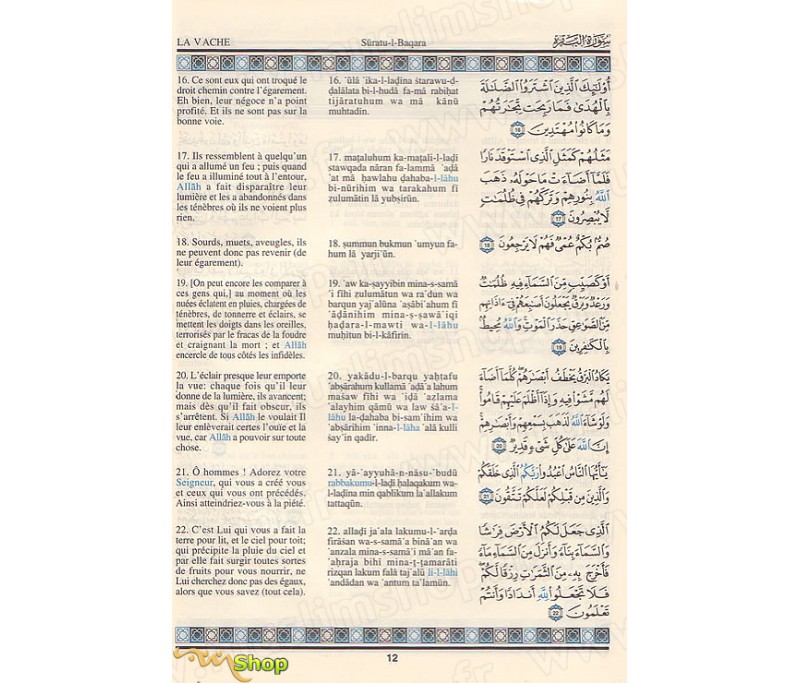 LA VACHE
Sūratu-l-Baqara
سُورَةُ البَقَرَة
16. Ce sont eux qui ont troqué le
droit chemin contre l'égarement.
Eh bien, leur négoce n'a point
profité. Et ils ne sont pas sur la
bonne voie.
17. Ils ressemblent à quelqu'un
qui a allumé un feu ; puis quand
le feu a illuminé tout à l'entour,
Allāh a fait disparaître leur
lumière et les a abandonnés dans
les ténèbres où ils ne voient plus
rien.
18. Sourds, muets, aveugles, ils
ne peuvent donc pas revenir (de
leur égarement).
19. [On peut encore les comparer à
ces gens qui,] au moment où les
nuées éclatent en pluies, chargées de
ténèbres, de tonnerre et éclairs, se
mettent les doigts dans les oreilles,
terrorisés par le fracas de la foudre
et craignant la mort ; et Allāh
encercle de tous côtés les infidèles.
20. L'éclair presque leur emporte
la vue: chaque fois qu'il leur
donne de la lumière, ils avancent;
mais dès qu'il fait obscur, ils
s'arrêtent. Si Allāh le voulait Il
leur enlèverait certes l'ouïe et la
vue, car Allāh a pouvoir sur toute
chose.
21. Ô hommes ! Adorez votre
Seigneur, qui vous a créé vous
et ceux qui vous ont précédés.
Ainsi atteindriez-vous à la piété.
22. C'est Lui qui vous a fait la
terre pour lit, et le ciel pour toit;
qui précipite la pluie du ciel et
par elle fait surgir toutes sortes
de fruits pour vous nourrir, ne
Lui cherchez donc pas des égaux,
alors que vous savez (tout cela).
16. 'ūlā 'ika-l-laḏīna štarawu-ḍ-
ḍalālata bi-l-hudā fa-mā rabiḥat
tijāratuhum wa mā kānū
muhtadīn.
17. maṯaluhum ka-maṯali-l-laḏī
stawqada nāran fa-lammā 'aḍā
'at mā ḥawlahu ḏahaba-l-lāhu
bi-nūrihim wa tarakahum fī
ẓulumātin lā yubṣirūn.
18. ṣummun bukmun 'umyun fa-
hum lā yarji'ūn.
19. 'aw ka-ṣayyibin mina-s-samā
'i fīhi ẓulumātun wa ra'dun wa
barqun yaj'alūna 'aṣābi'ahum fī
'āḏānihim mina-ṣ-ṣawā'iqi
ḥaḏara-l-mawti wa-l-lāhu
muḥīṭun bi-l-kāfirīn.
20. yakādu-l-barqu yaḫṭafu
'abṣārahum kullamā 'aḍā'a lahum
mašaw fīhi wa 'iḏā 'aẓlama
'alayhim qāmū wa law šā'a-l-
lāhu la-ḏahaba bi-sam'ihim wa
'abṣārihim 'inna-l-lāha 'alā kulli
šay'in qadīr.
21. yā-'ayyuhā-n-nāsu-'budū
rabbakumu-l-laḏī ḫalaqakum wa-
l-laḏīna min qablikum la'allakum
tattaqūn.
22. allaḏī ja'ala lakumu-l-'arḍa
firāšan wa-s-samā'a binā'an wa
'anzala mina-s-samā'i mā'an fa-
'aḫraja bihi mina-ṯ-ṯamarāti
rizqan lakum falā taj'alū li-l-lāhi
'andādan wa 'antum ta'lamūn.
أُوْلَٰٓئِكَ ٱلَّذِينَ ٱشْتَرَوُا۟ ٱلضَّلَٰلَةَ
بِٱلْهُدَىٰ فَمَا رَبِحَت تِّجَٰرَتُهُمْ
وَمَا كَانُوا۟ مُهْتَدِينَ 16
مَثَلُهُمْ كَمَثَلِ ٱلَّذِى ٱسْتَوْقَدَ نَارًا
فَلَمَّآ أَضَآءَتْ مَا حَوْلَهُۥ ذَهَبَ
ٱللَّهُ بِنُورِهِمْ وَتَرَكَهُمْ فِى ظُلُمَٰتٍ
لَّا يُبْصِرُونَ 17
صُمٌّۢ بُكْمٌ عُمْىٌ فَهُمْ لَا يَرْجِعُونَ 18
أَوْ كَصَيِّبٍ مِّنَ ٱلسَّمَآءِ فِيهِ ظُلُمَٰتٌ
وَرَعْدٌ وَبَرْقٌ يَجْعَلُونَ أَصَٰبِعَهُمْ فِىٓ ءَاذَانِهِم
مِّنَ ٱلصَّوَٰعِقِ حَذَرَ ٱلْمَوْتِ وَٱللَّهُ مُحِيطٌۢ
بِٱلْكَٰفِرِينَ 19
يَكَادُ ٱلْبَرْقُ يَخْطَفُ أَبْصَٰرَهُمْ كُلَّمَآ أَضَآءَ
لَهُم مَّشَوْا۟ فِيهِ وَإِذَآ أَظْلَمَ عَلَيْهِمْ قَامُوا۟
وَلَوْ شَآءَ ٱللَّهُ لَذَهَبَ بِسَمْعِهِمْ وَأَبْصَٰرِهِمْ
إِنَّ ٱللَّهَ عَلَىٰ كُلِّ شَىْءٍ قَدِيرٌ 20
يَٰٓأَيُّهَا ٱلنَّاسُ ٱعْبُدُوا۟ رَبَّكُمُ ٱلَّذِى خَلَقَكُمْ
وَٱلَّذِينَ مِن قَبْلِكُمْ لَعَلَّكُمْ تَتَّقُونَ 21
ٱلَّذِى جَعَلَ لَكُمُ ٱلْأَرْضَ فِرَٰشًا
وَٱلسَّمَآءَ بِنَآءً وَأَنزَلَ مِنَ ٱلسَّمَآءِ مَآءً
فَأَخْرَجَ بِهِۦ مِنَ ٱلثَّمَرَٰتِ رِزْقًا لَّكُمْ
فَلَا تَجْعَلُوا۟ لِلَّهِ أَندَادًا وَأَنتُمْ
تَعْلَمُونَ 22
12
Shop